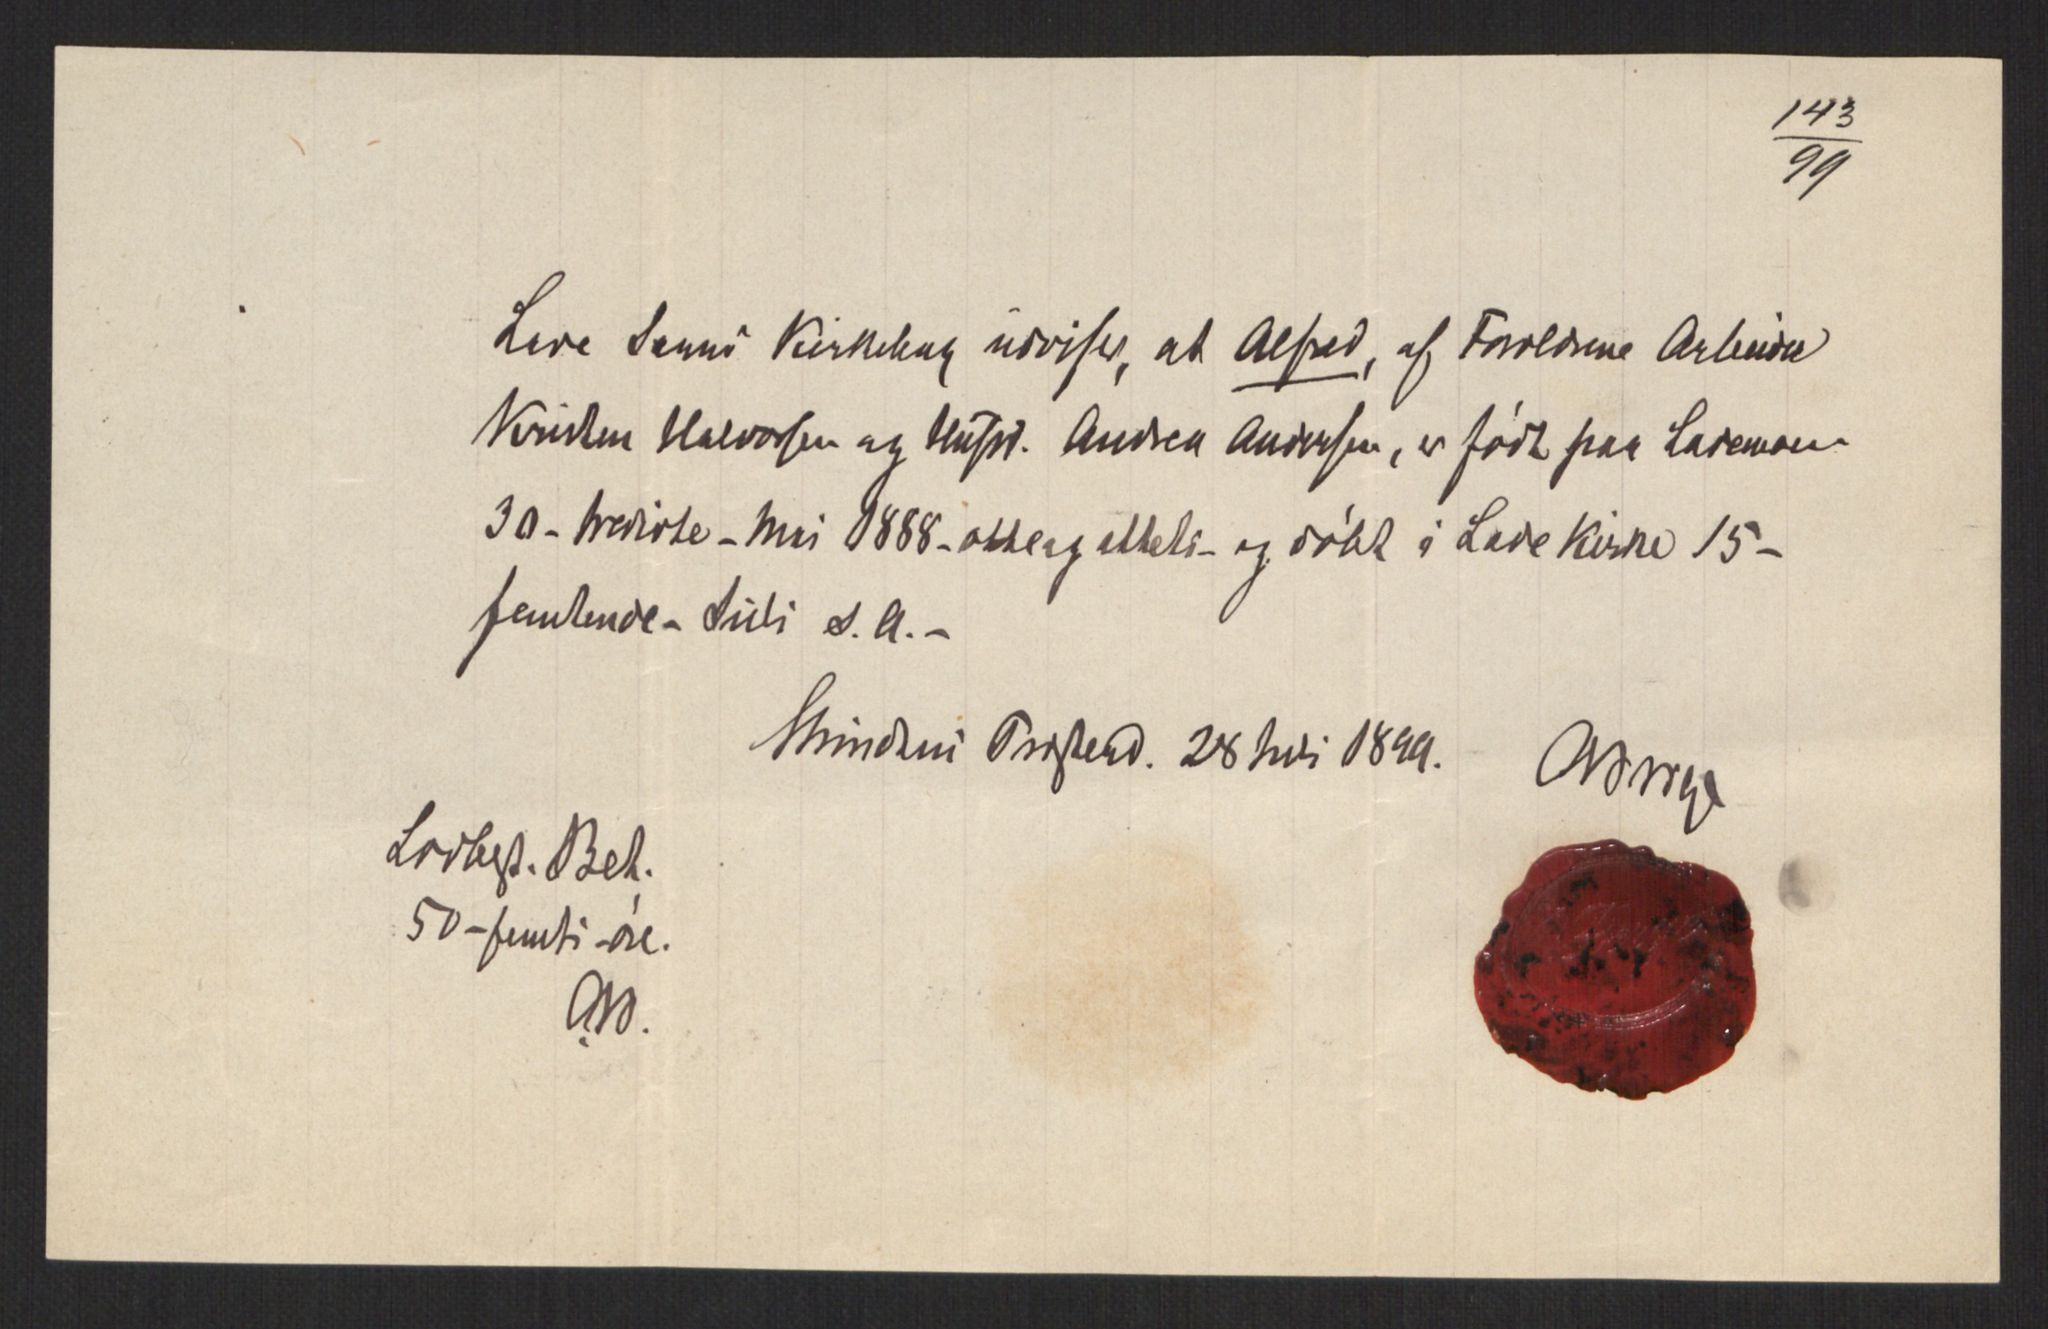 143
99
Lade Sogns Kirkebog udviser, at Alfred, af Forældrene Arbeider
Kristen Halvorsen og Hustr. Andrea Andersen, er født paa Lademoen
30 - tredivte - Mai 1888 - otteogotteti - og døbt i Lade Kirke 15 -
femtende - Juli s. A. -
Strindens Præstegd. 28 Juli 1899.
Lovbest. Bet.
50 - femti - øre.